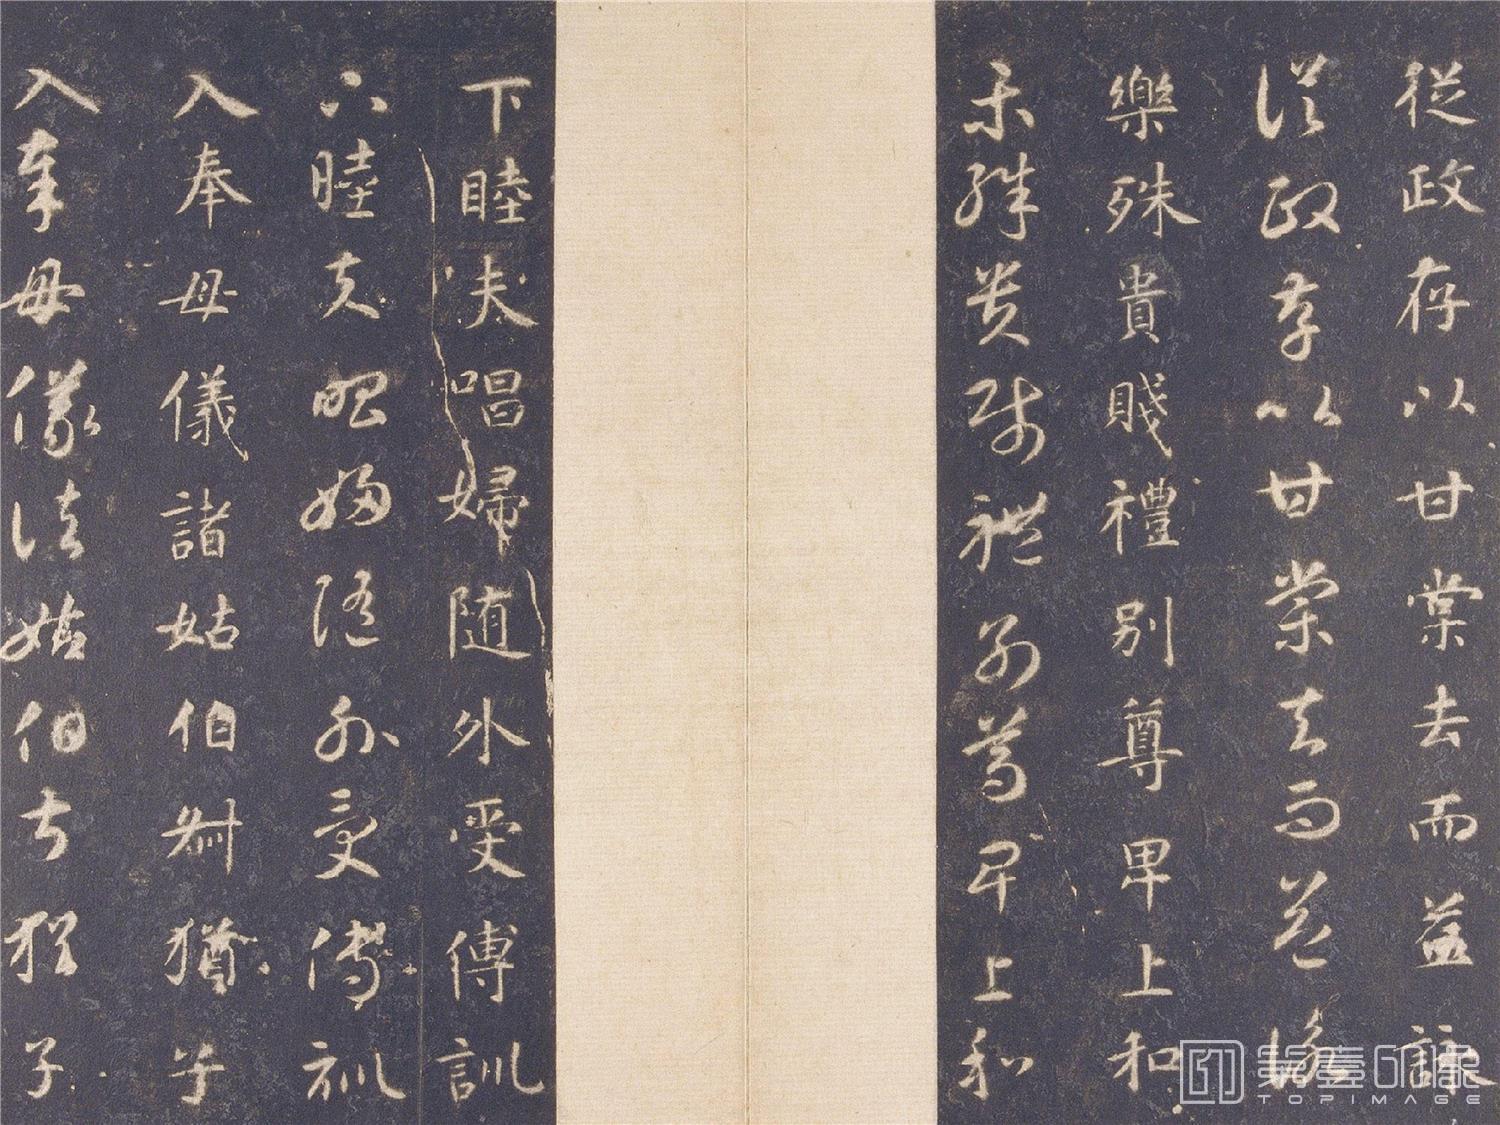 從政存以甘棠去而益詠
從政存以甘棠去而益詠
樂殊貴賤禮別尊卑上和
樂殊貴賤禮別尊卑上和
下睦夫唱婦随外受傅訓
下睦夫唱婦随外受傅訓
入奉母儀諸姑伯叔猶子
入奉母儀諸姑伯叔猶子
TOPIMAGE